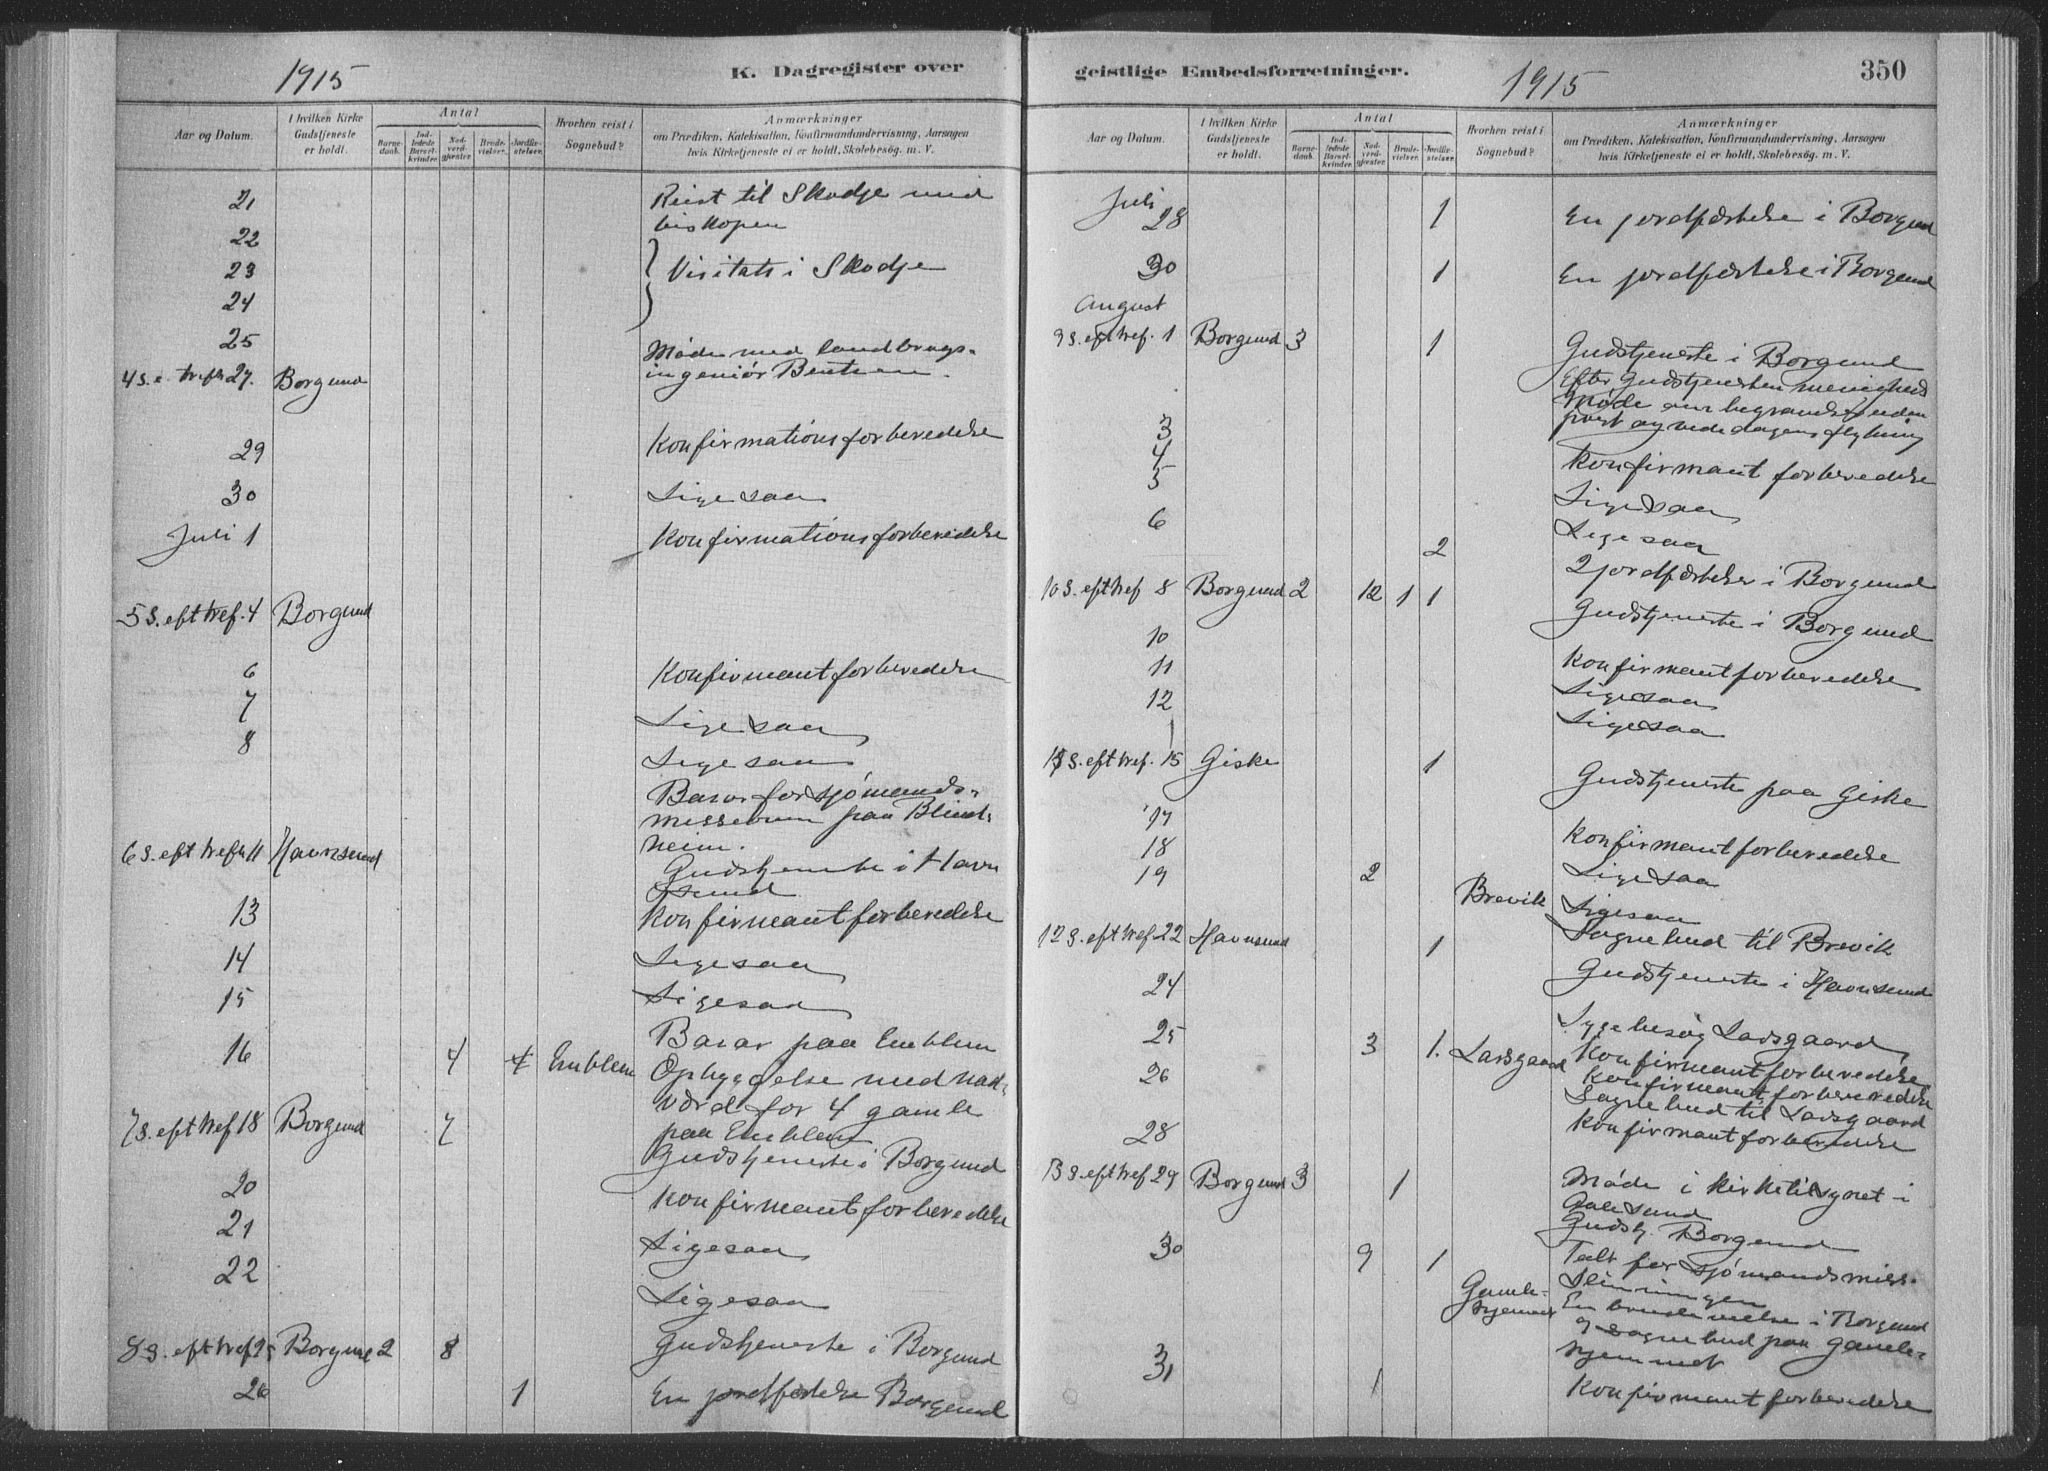 1915
K. Dagregister over
Antal
Aar og Datum.
I hvilken Kirke Gudstjeneste er holdt.
Barne-daab.
Ind-ledede Barsel-kvinder.
Nad-verd-gjæster.
Brude-vielser.
Jordfæ-stelser.
Hvorhen reist i Sognebud?
Anmærkninger
om Prædiken, Katekisation, Konfirmandundervisning, Aarsagen
hvis Kirketjeneste ei er holdt, Skolebesög. m. V.
21 Reist til Skodje med
biskopen
22
23 } Visitats i Skodje
24
25 Møde med landbrugs-
ingeniør Bentsen.
4 S. e. trefh 27. Borgund
29 Konfirmationsforberedelse
30 Ligesaa
Juli 1 Konfirmationsforberedelse
5 S. eft tref. 4 Borgund
6 Konfirmantforberedelse
7 Ligesaa
8 Ligesaa
Basar for sjømands-
missionen paa Blind-
heim.
6 S. eft trefh 11 Havnsund Gudstjeneste i Havn
sund
13 Konfirmantforberedelse
14 Ligesaa
15 Ligesaa
16 4 4 Emblem Basar paa Emblem
Opbyggelse med nad-
værd for 4 gamle
paa Emblem
7 S. eft tref 18 Borgund 7 Gudstjeneste i Borgund
20 Konfirmantforberedelse
21 Ligesaa
22 Ligesaa
8 S. eft tref 25 Borgund 2 8 Gudstjeneste i Borgund
26 1 En jordfæstelse Borgund
geistlige Embedsforretninger.
1915
350
Antal
Aar og Datum.
I hvilken Kirke Gudstjeneste er holdt.
Barne-daab.
Ind-ledede Barsel-kvinder.
Nad-verd-gjæster.
Brude-vielser.
Jordfæ-stelser.
Hvorhen reist i Sognebud?
Anmærkninger
om Prædiken, Katekisation, Konfirmandundervisning, Aarsagen
hvis Kirketjeneste ei er holdt, Skolebesög. m. V.
Juli
28 1 En jordfæstelse i Borgund
30 1 En jordfæstelse i Borgund
August
9 S. eft tref. 1 Borgund 3 1 Gudstjeneste i Borgund
Efter Gudstjenesten menigheds
møde om
prest og
3 Konfirmantforberedelse
4 Ligesaa
5 Ligesaa
6 2 2 jordfæstelser i Borgund
10 S. eft tref 8 Borgund 2 12 1 1 Gudstjeneste i Borgund
10 Konfirmantforberedelse
11 Ligesaa
12 Ligesaa
11 S. eft tref. 15 Giske 1 Gudstjeneste paa Giske
17 Konfirmantforberedelse
18 Ligesaa
19 2 Brevik Ligesaa
Sognebud til Brevik
12 S. eft tref 22 Havnsund 1 Gudstjeneste i Havnsund
24 Sygebesøg Larsgaard
25 3 1. Larsgaard Konfirmantforberedelse
26 Konfirmantforberedelse
Sognebud til Larsgaard
28 Konfirmantforberedelse
13 S. eft tref 29 Borgund 3 1 Møde i kirketilsynet i
Aalesund
Gudstj. Borgund
30 9 1 Talt for sjømandsmiss.
Slinningen
Gamle-
hjemmet En i Borgund
og sognebud paa gamle-
hjemmet
31 1 Konfirmantforberedelse